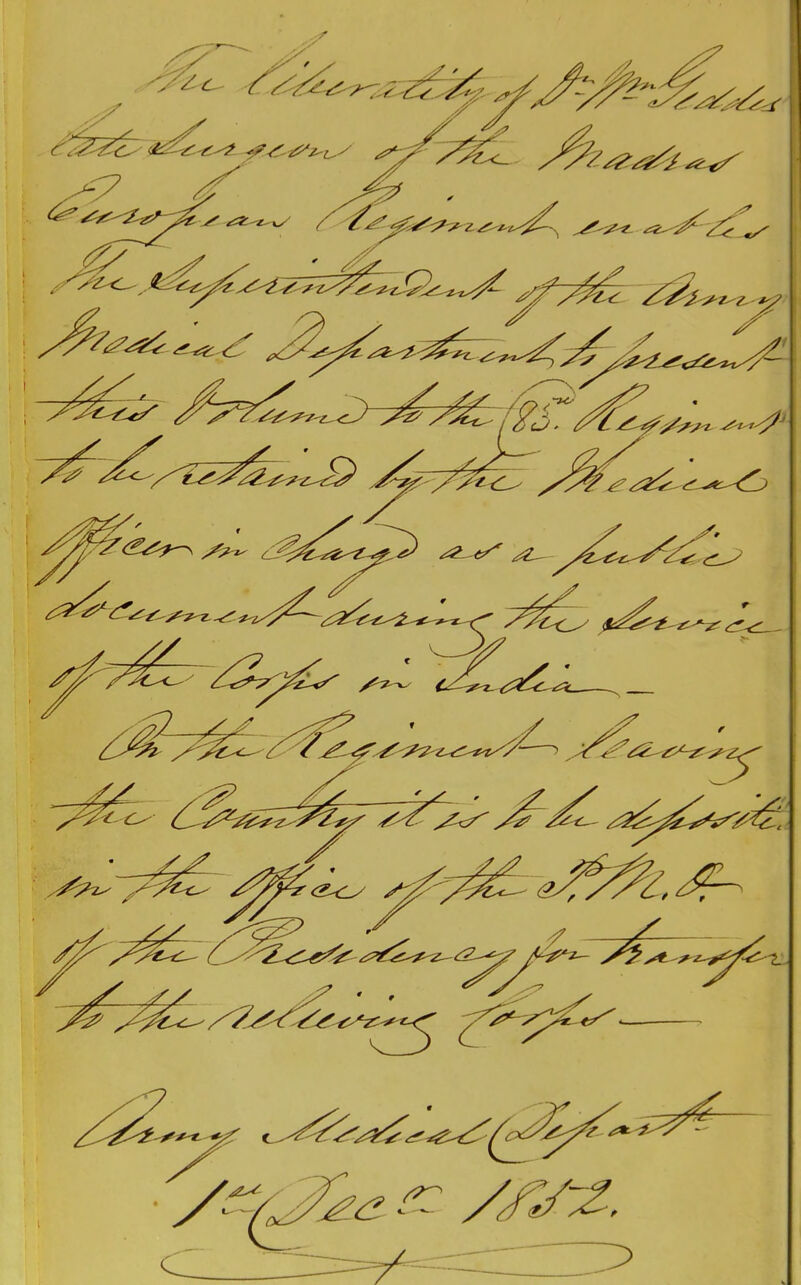 The liberality of Dr. Wm. Geddes
late Surgeon of the Madras
European Regiment, enables
The Superintendent of the Army
Medical Department, to present
this Volume to the Regiment
to be retained by the Medical
Officer in Charge as a public
document during the Service
of the Corps in India —
On the Regiment leaving
the Country it is to be deposite
in the Office of the
of the Presidency for transfer
to the relieving Corps —
Army Medical Depart
1st Decr 1852.